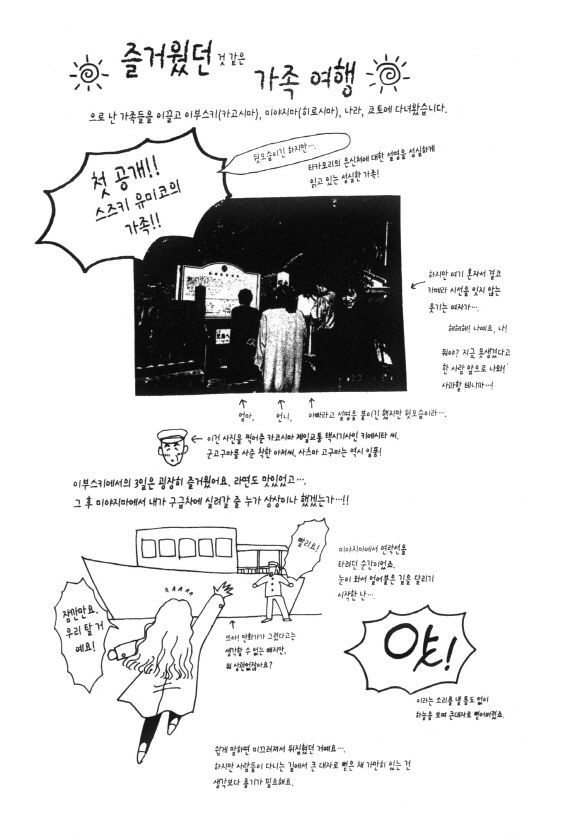 즐거웠던 것 같은
가족 여행
으로 난 가족들을 이끌고 이부스키(카고시마), 미야지마(히로시마), 나라, 쿄토에 다녀왔습니다.
첫 공개!!
스즈키 유미코의
가족!!
뒷모습이긴 하지만….
타카모리의 은신처에 대한 설명을 성실하게
읽고 있는 성실한 가족!
하지만 여기 혼자서 결코
카메라 시선을 잊지 않는
웃기는 여자가….
헤헤헤! 나예요, 나!
뭐야? 지금 못생겼다고
한 사람 앞으로 나와!
사과할 테니까…!
엄마, 언니, 아빠라고 설명을 붙이긴 했지만 뒷모습이라….
이건 사진을 찍어준 카코시마 제일교통 택시기사인 키에시타 씨.
군고구마를 사준 착한 아저씨. 사츠마 고구마는 역시 일품!
이부스키에서의 3일은 굉장히 즐거웠어요. 라면도 맛있었고….
그 후 미야지마에서 내가 구급차에 실려갈 줄 누가 상상이나 했겠는가…!!
빨리요!
미야지마에서 연락선을
타려던 순간이었죠.
눈이 와서 얼어붙은 길을 달리기
시작한 난….
잠깐만요.
우리 탈 거
예요!
뜨아! 만화가가 그렸다고는
생각할 수 없는 배지만,
뭐 상관없잖아요?
얏!
이라는 소리를 낼 틈도 없이
하늘을 보며 큰대자로 뻗어버렸죠.
쉽게 말하면 미끄러져서 뒤집혔던 거예요….
하지만 사람들이 다니는 길에서 큰 대자로 뻗은 채 가만히 있는 건
생각보다 용기가 필요해요.